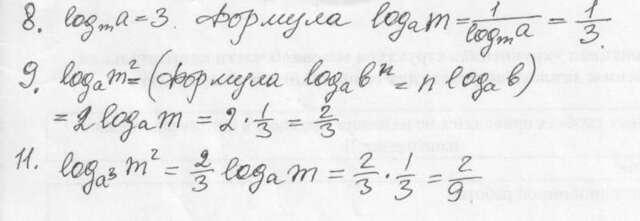 8. logₘa = 3. Формула logₐm = 1/logₘa = 1/3
9. logₐm² = (формула logₐbⁿ = n logₐb)
= 2 logₐm = 2 · 1/3 = 2/3
11. logₐ³ m² = 2/3 logₐm = 2/3 · 1/3 = 2/9